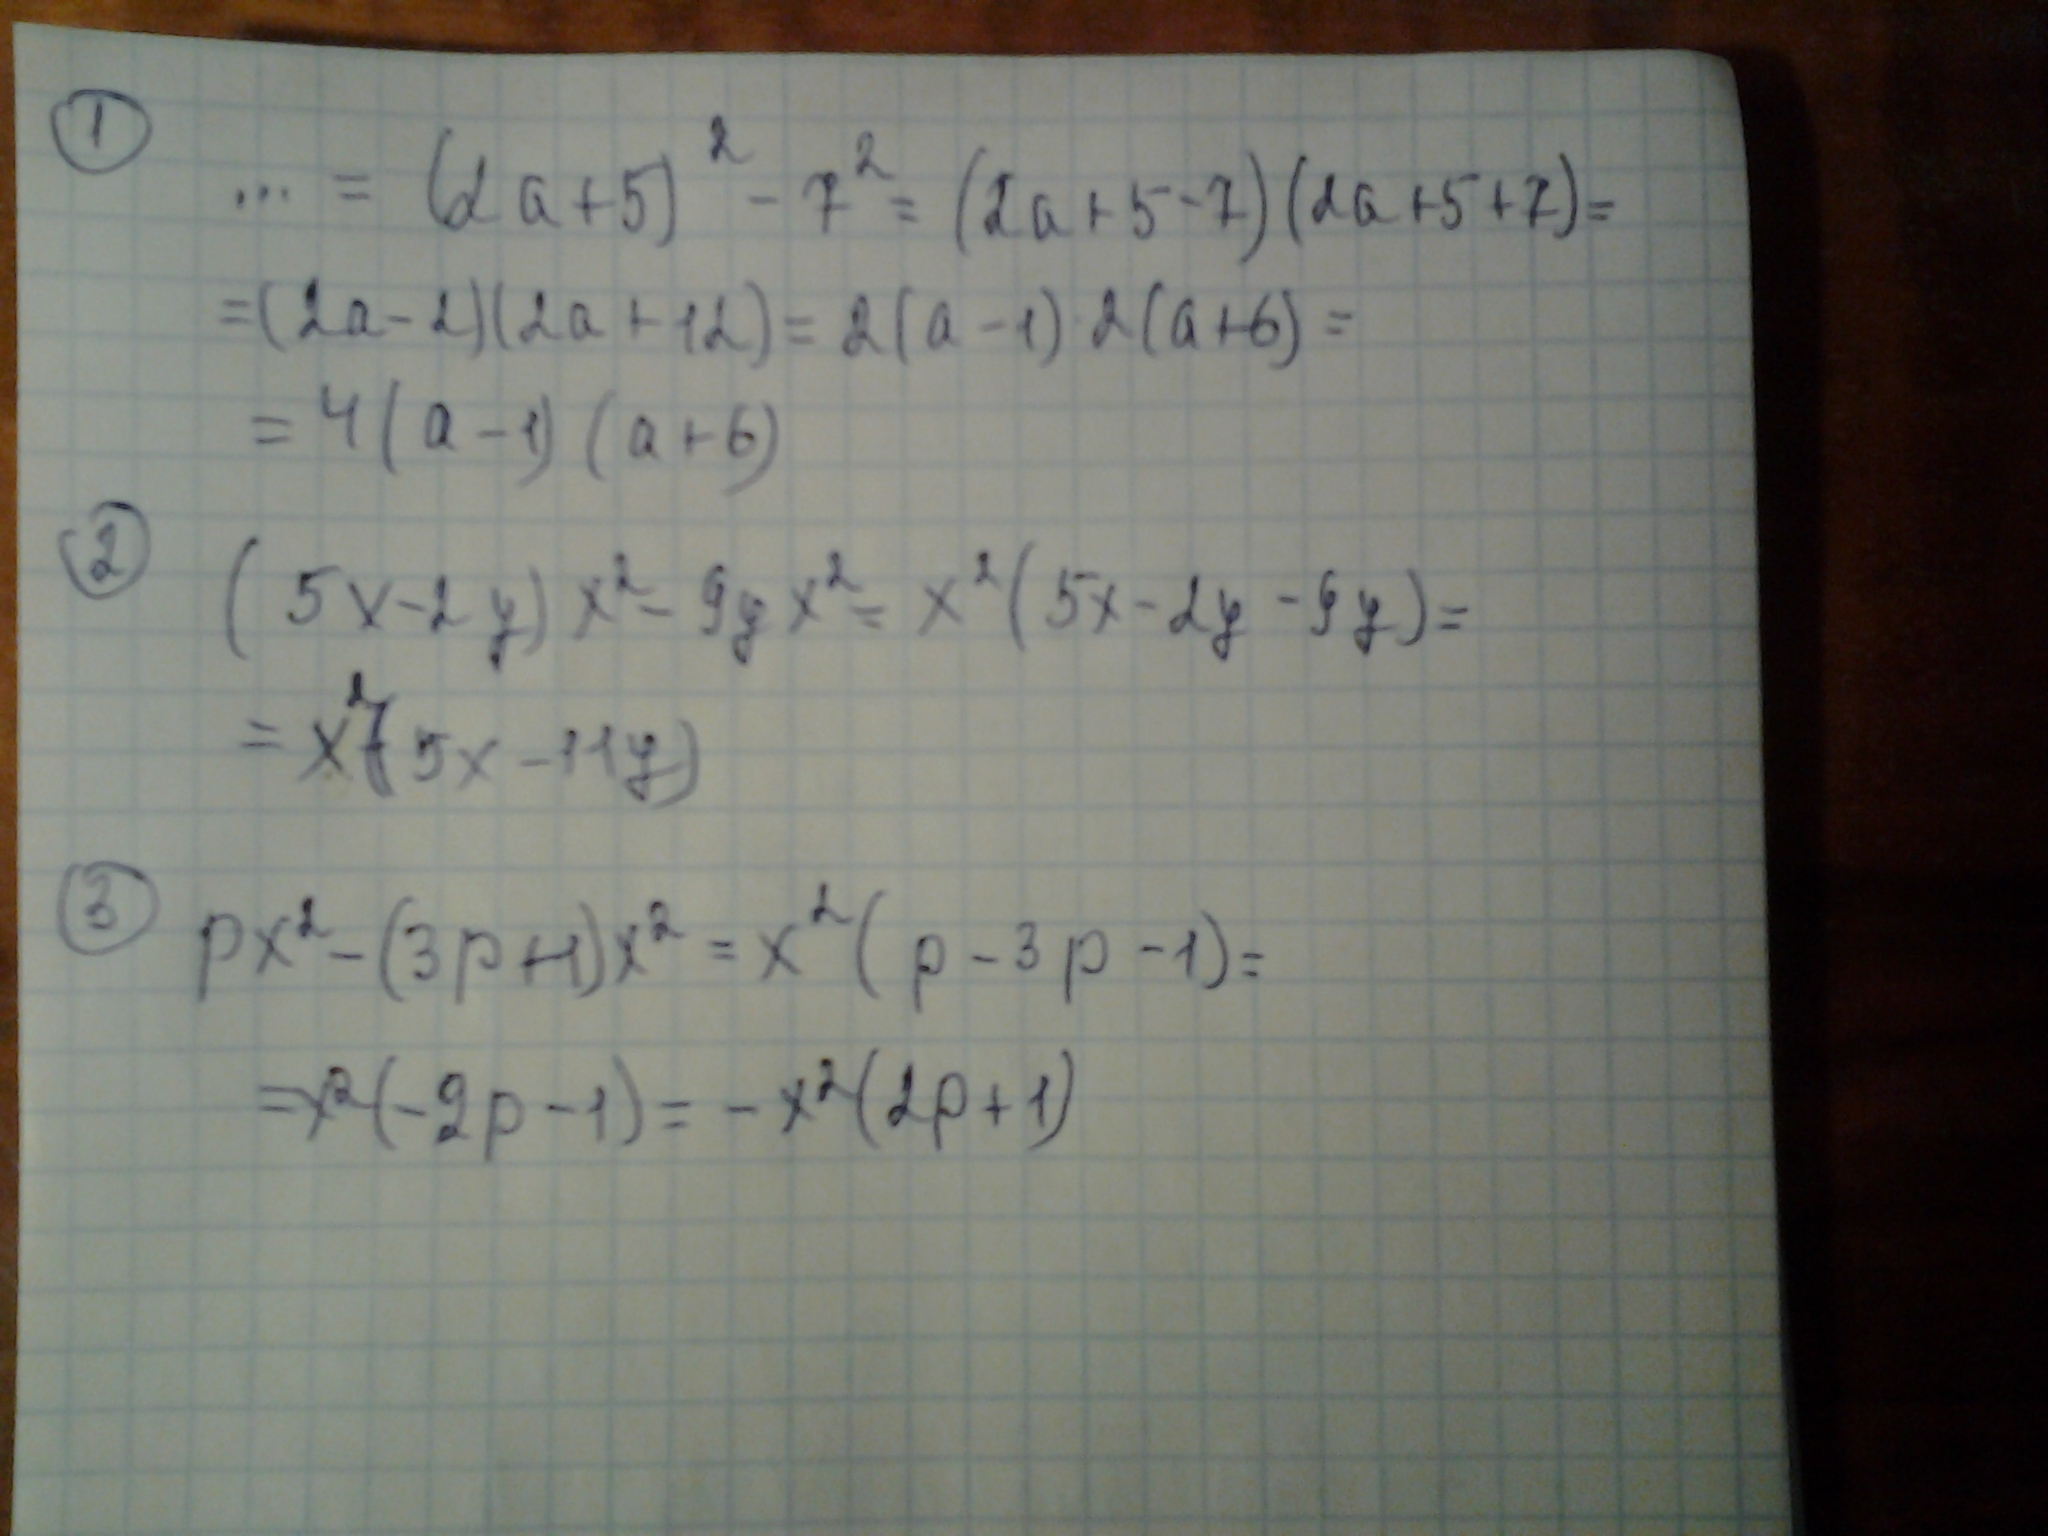 ① ... = (2a+5)² - 7² = (2a+5-7)(2a+5+7)=
=(2a-2)(2a+12)=2(a-1)·2(a+6)=
=4(a-1)(a+6)
② (5x-2y)x²-9yx²=x²(5x-2y-9y)=
=x²(5x-11y)
③ px²-(3p+1)x²=x²(p-3p-1)=
=x²(-2p-1)=-x²(2p+1)